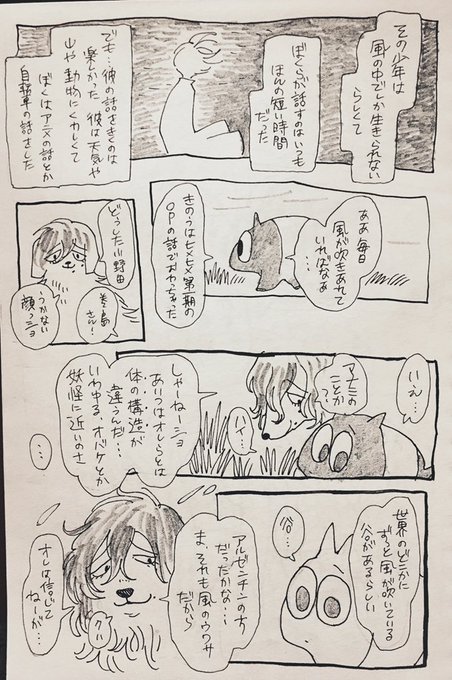 その少年は
風の中でしか生きられない
らしくて
ぼくらが話すのはいつも
ほんの短い時間
だった
でも…彼の話をきくのは
楽しかった 彼は天気や
山や動物にくわしくて
ぼくはアニメの話とか
自転車の話をした
ああ毎日
風が吹きあれて
いればなあ
きのうはヒメヒメ第一期の
OPの話でおわっちゃった
どうした小野田
巻島
さん!
うかない
顔っショ
いえ…
アナニの
ことか
ハイ…
しゃーねーショ
あいつはオレらとは
体の構造が
違うんだ…
いわゆるオバケとか
妖怪に近いのさ
…
世界のどこかに
ずっと風が吹いている
谷があるらしい
谷…
アルゼンチンの方
だったかな…
ま、それも風のウワサ
だから
オレは信じて
ねーが…